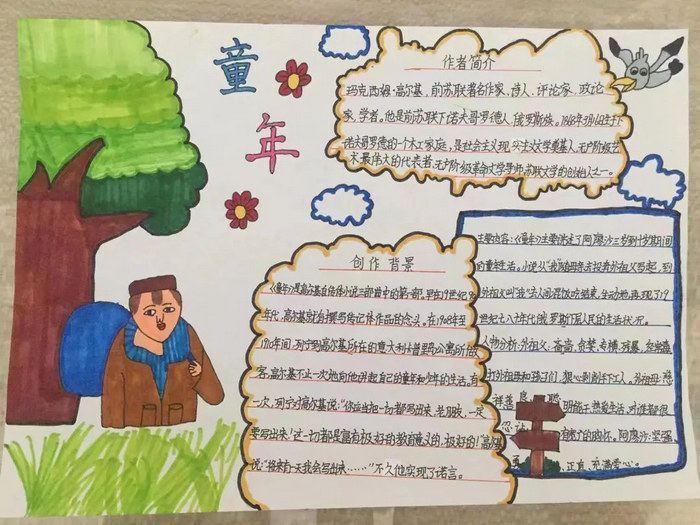 童年
作者简介
玛克西姆·高尔基,前苏联著名作家、诗人、评论家、政论
家、学者。他是前苏联下诺夫哥罗德人,俄罗斯族。1868年3月16生于下
诺夫哥罗德的一个木工家庭,是社会主义现实主义文学奠基人,无产阶级艺
术最伟大的代表者,无产阶级革命文学导师,苏联文学的创始人之一。
创作背景
《童年》是高尔基自传体小说三部曲中的第一部。早在19世纪90
年代,高尔基就有撰写传记体作品的念头。在1908年至
1910年间,列宁到高尔基所在的意大利卡普里岛公寓所做
客,高尔基不止一次地向他讲起自己的童年和少年的生活。有
一次,列宁对高尔基说:“你应当把一切都写出来,老朋友,一定
要写出来!这一切都是富有极好的教育意义的,极好的!”高尔基
说:“将来有一天我会写出来……”不久他实现了诺言。
主要内容:《童年》主要讲述了阿廖沙三岁到十岁期间
的童年生活。小说从“我”随母亲去投奔外祖父写起,到
外祖父叫“我”去人间混饭吃结束,生动地再现了19
世纪七八十年代俄罗斯下层人民的生活状况。
人物分析:外祖父:吝啬、贪婪、专横、残暴,经常毒
打外祖母和孩子们,狠心剥削手下工人。外祖母:慈
祥善良、聪明能干、热爱生活,对谁都很
忍让,有着 的胸怀。阿廖沙:坚强、
勇 、正直、充满爱心。